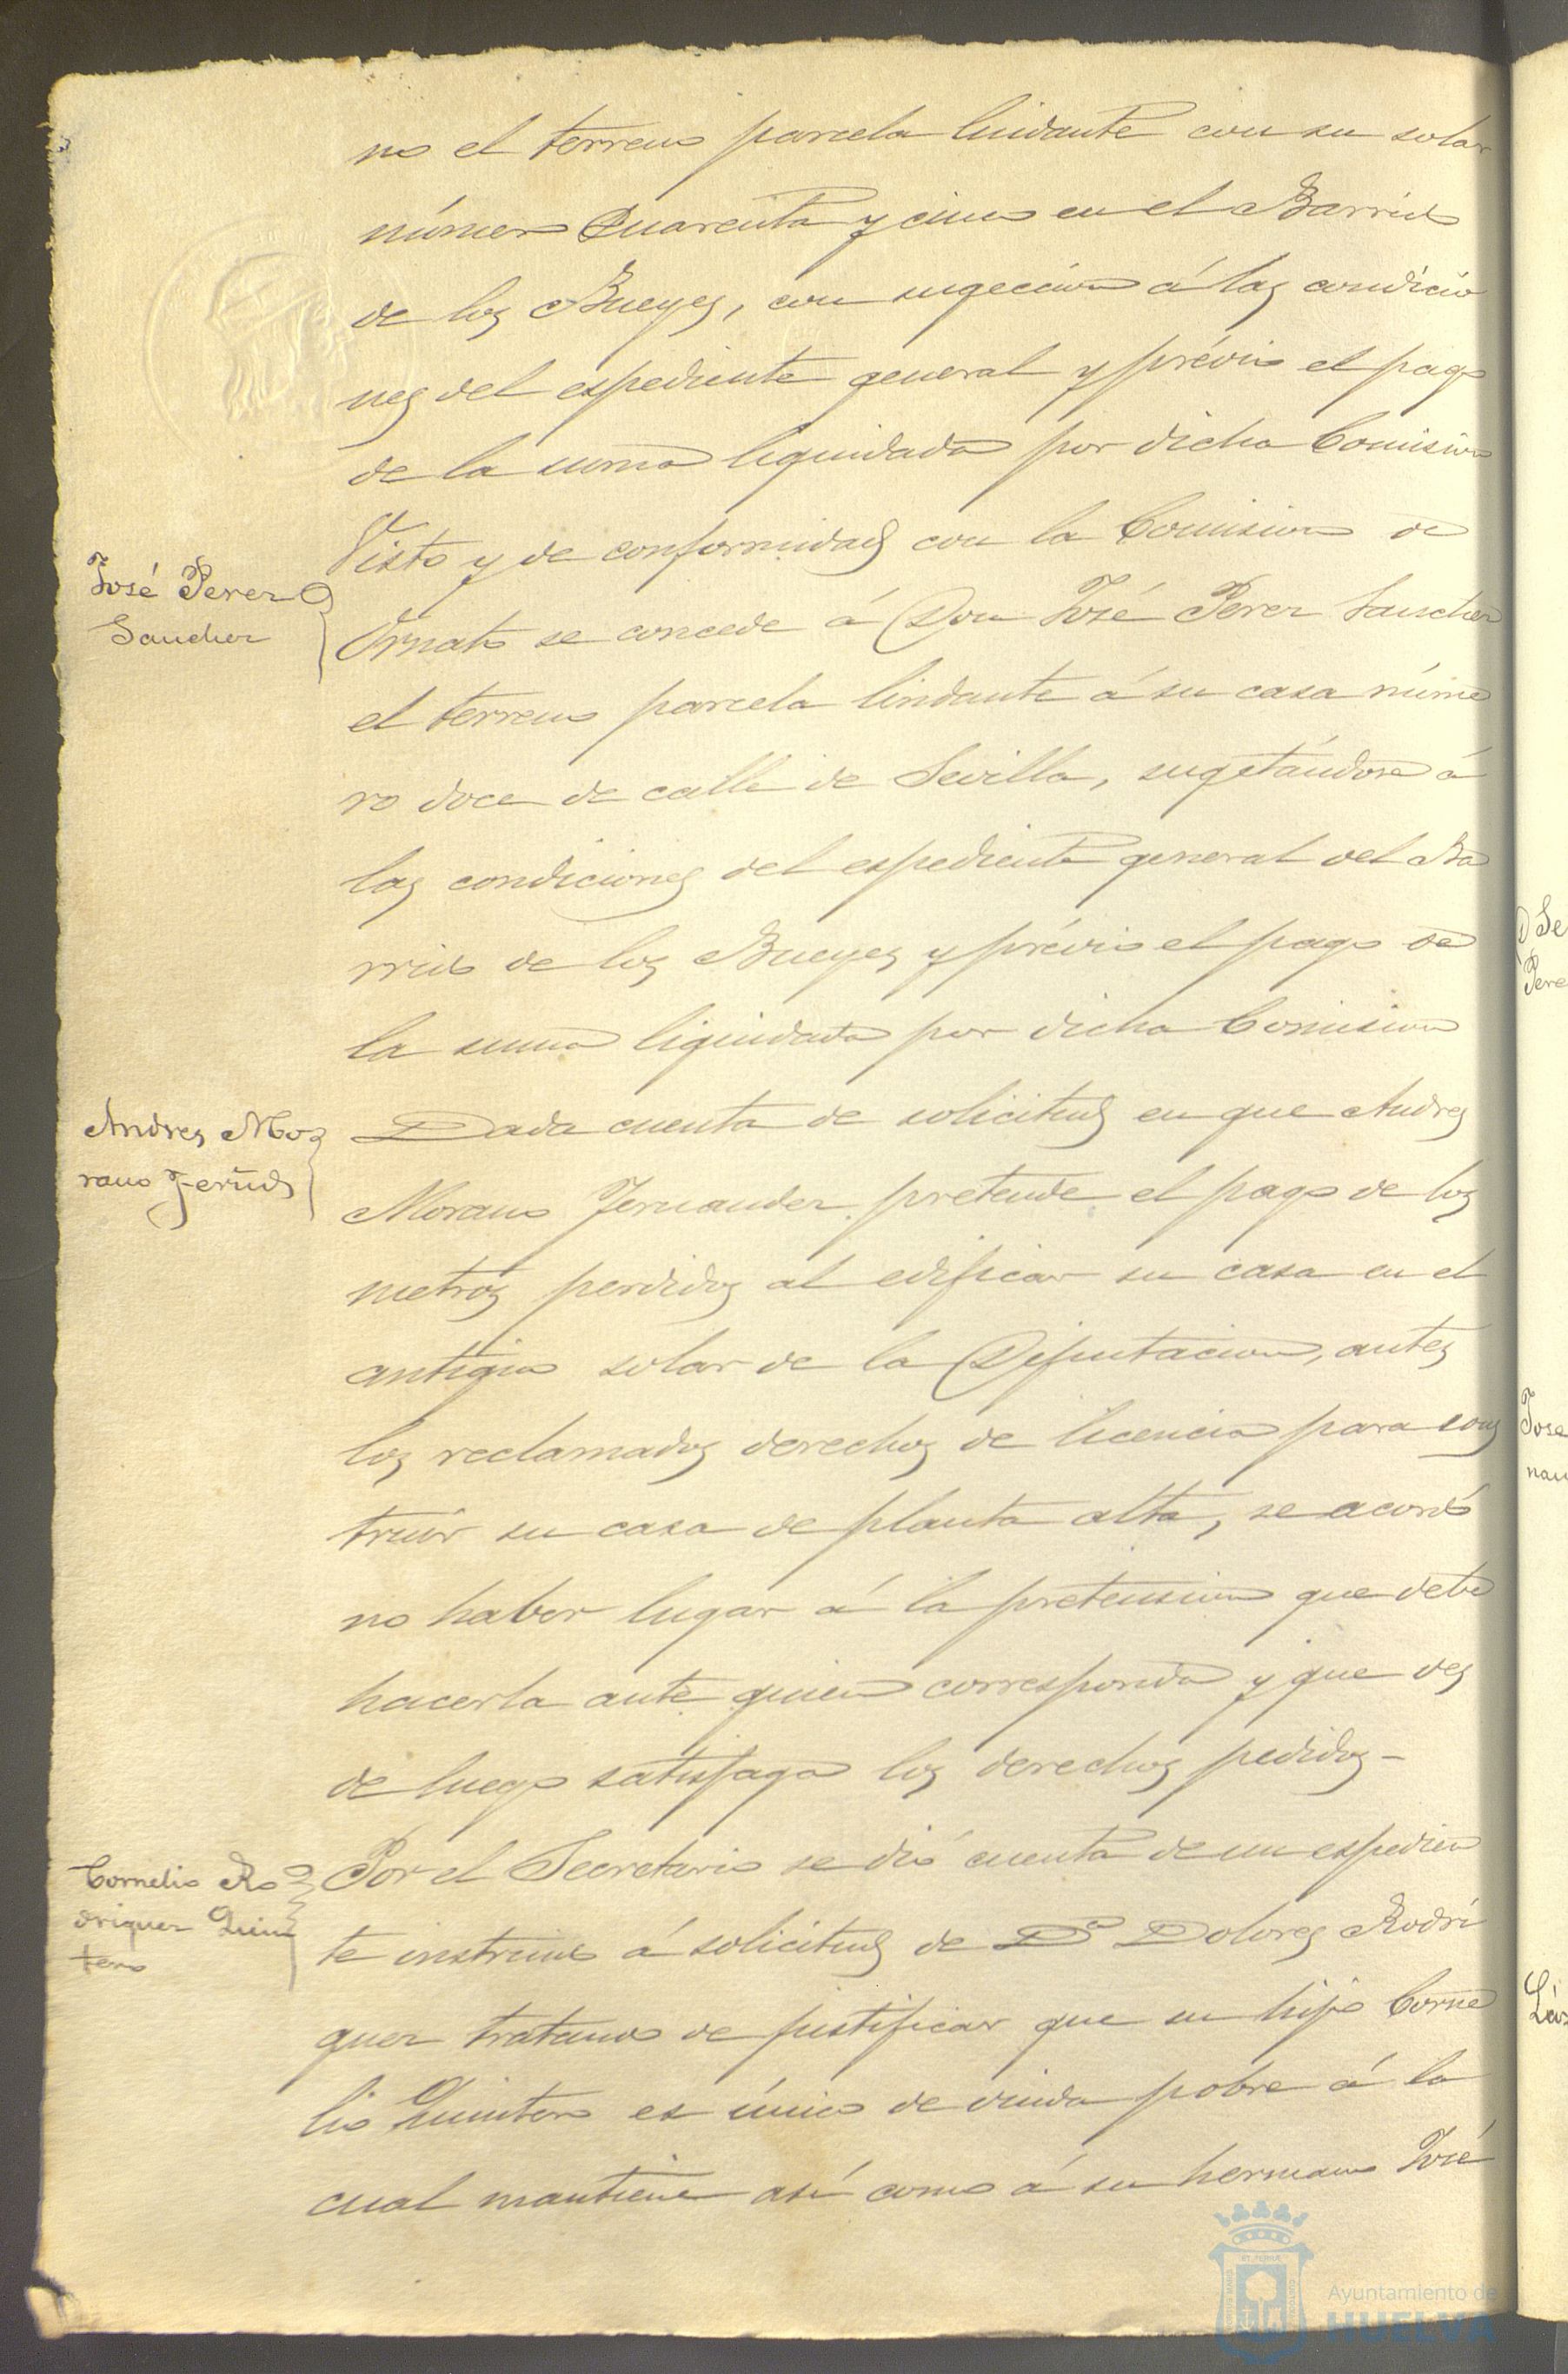 no el terreno parcela lindante con su solar
número Cuarenta y cinco en el Barrio
de los Bueyes, con sugeción á las condicio
nes del espediente general y prévio el pago
de la suma liquidada por dicha Comision
José Perez
Sanchez
Visto y de conformidad con la Comision de
Ornato se concede á Don José Perez Sanchez
el terreno parcela lindante á su casa núme
ro doce de calle de Sevilla, sugetándose á
las condiciones del espediente general del Ba
rrio de los Bueyes y prévio el pago de
la suma liquidada por dicha Comision
Andres Mo
rano Fernd
Dada cuenta de solicitud en que Andres
Morano Fernandez pretende el pago de los
metros perdidos al edificar su casa en el
antiguo solar de la Diputacion, antes
los reclamados derechos de licencia para cons
truir su casa de planta alta, se acordó
no haber lugar á la pretension que debe
hacerla ante quien corresponda y que des
de luego satisfaga los derechos pedidos -
Cornelio Ro
driguez Quin
tero
Por el Secretario se dió cuenta de un espedien
te instruido á solicitud de Dª Dolores Rodri
guez tratando de justificar que su hijo Corne
lio Quintero es único de viuda pobre á la
cual mantiene así como á su hermano José
Ayuntamiento de
HUELVA